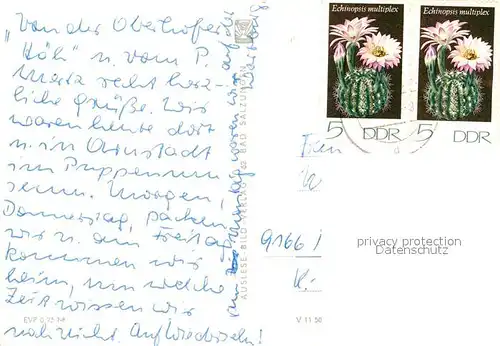 „Von der Oberhofer
Höh" u. vom P.
Maria recht herz-
liche Grüße. Wir
waren heute dort
u. in Arnstadt
im Puppenmu-
seum. Morgen,
Donnerstag, packen
wir u. am Freitag
kommen wir
heim, um welche
Zeit wissen wir
noch nicht. Auf Wiedersehn!
Montag waren wir auf der
AUSLESE-BILD-VERLAG 62 BAD SALZUNGEN
Echinopsis multiplex
5 DDR
Echinopsis multiplex
5 DDR
9166
privacy protection
Datenschutz
V 11 50